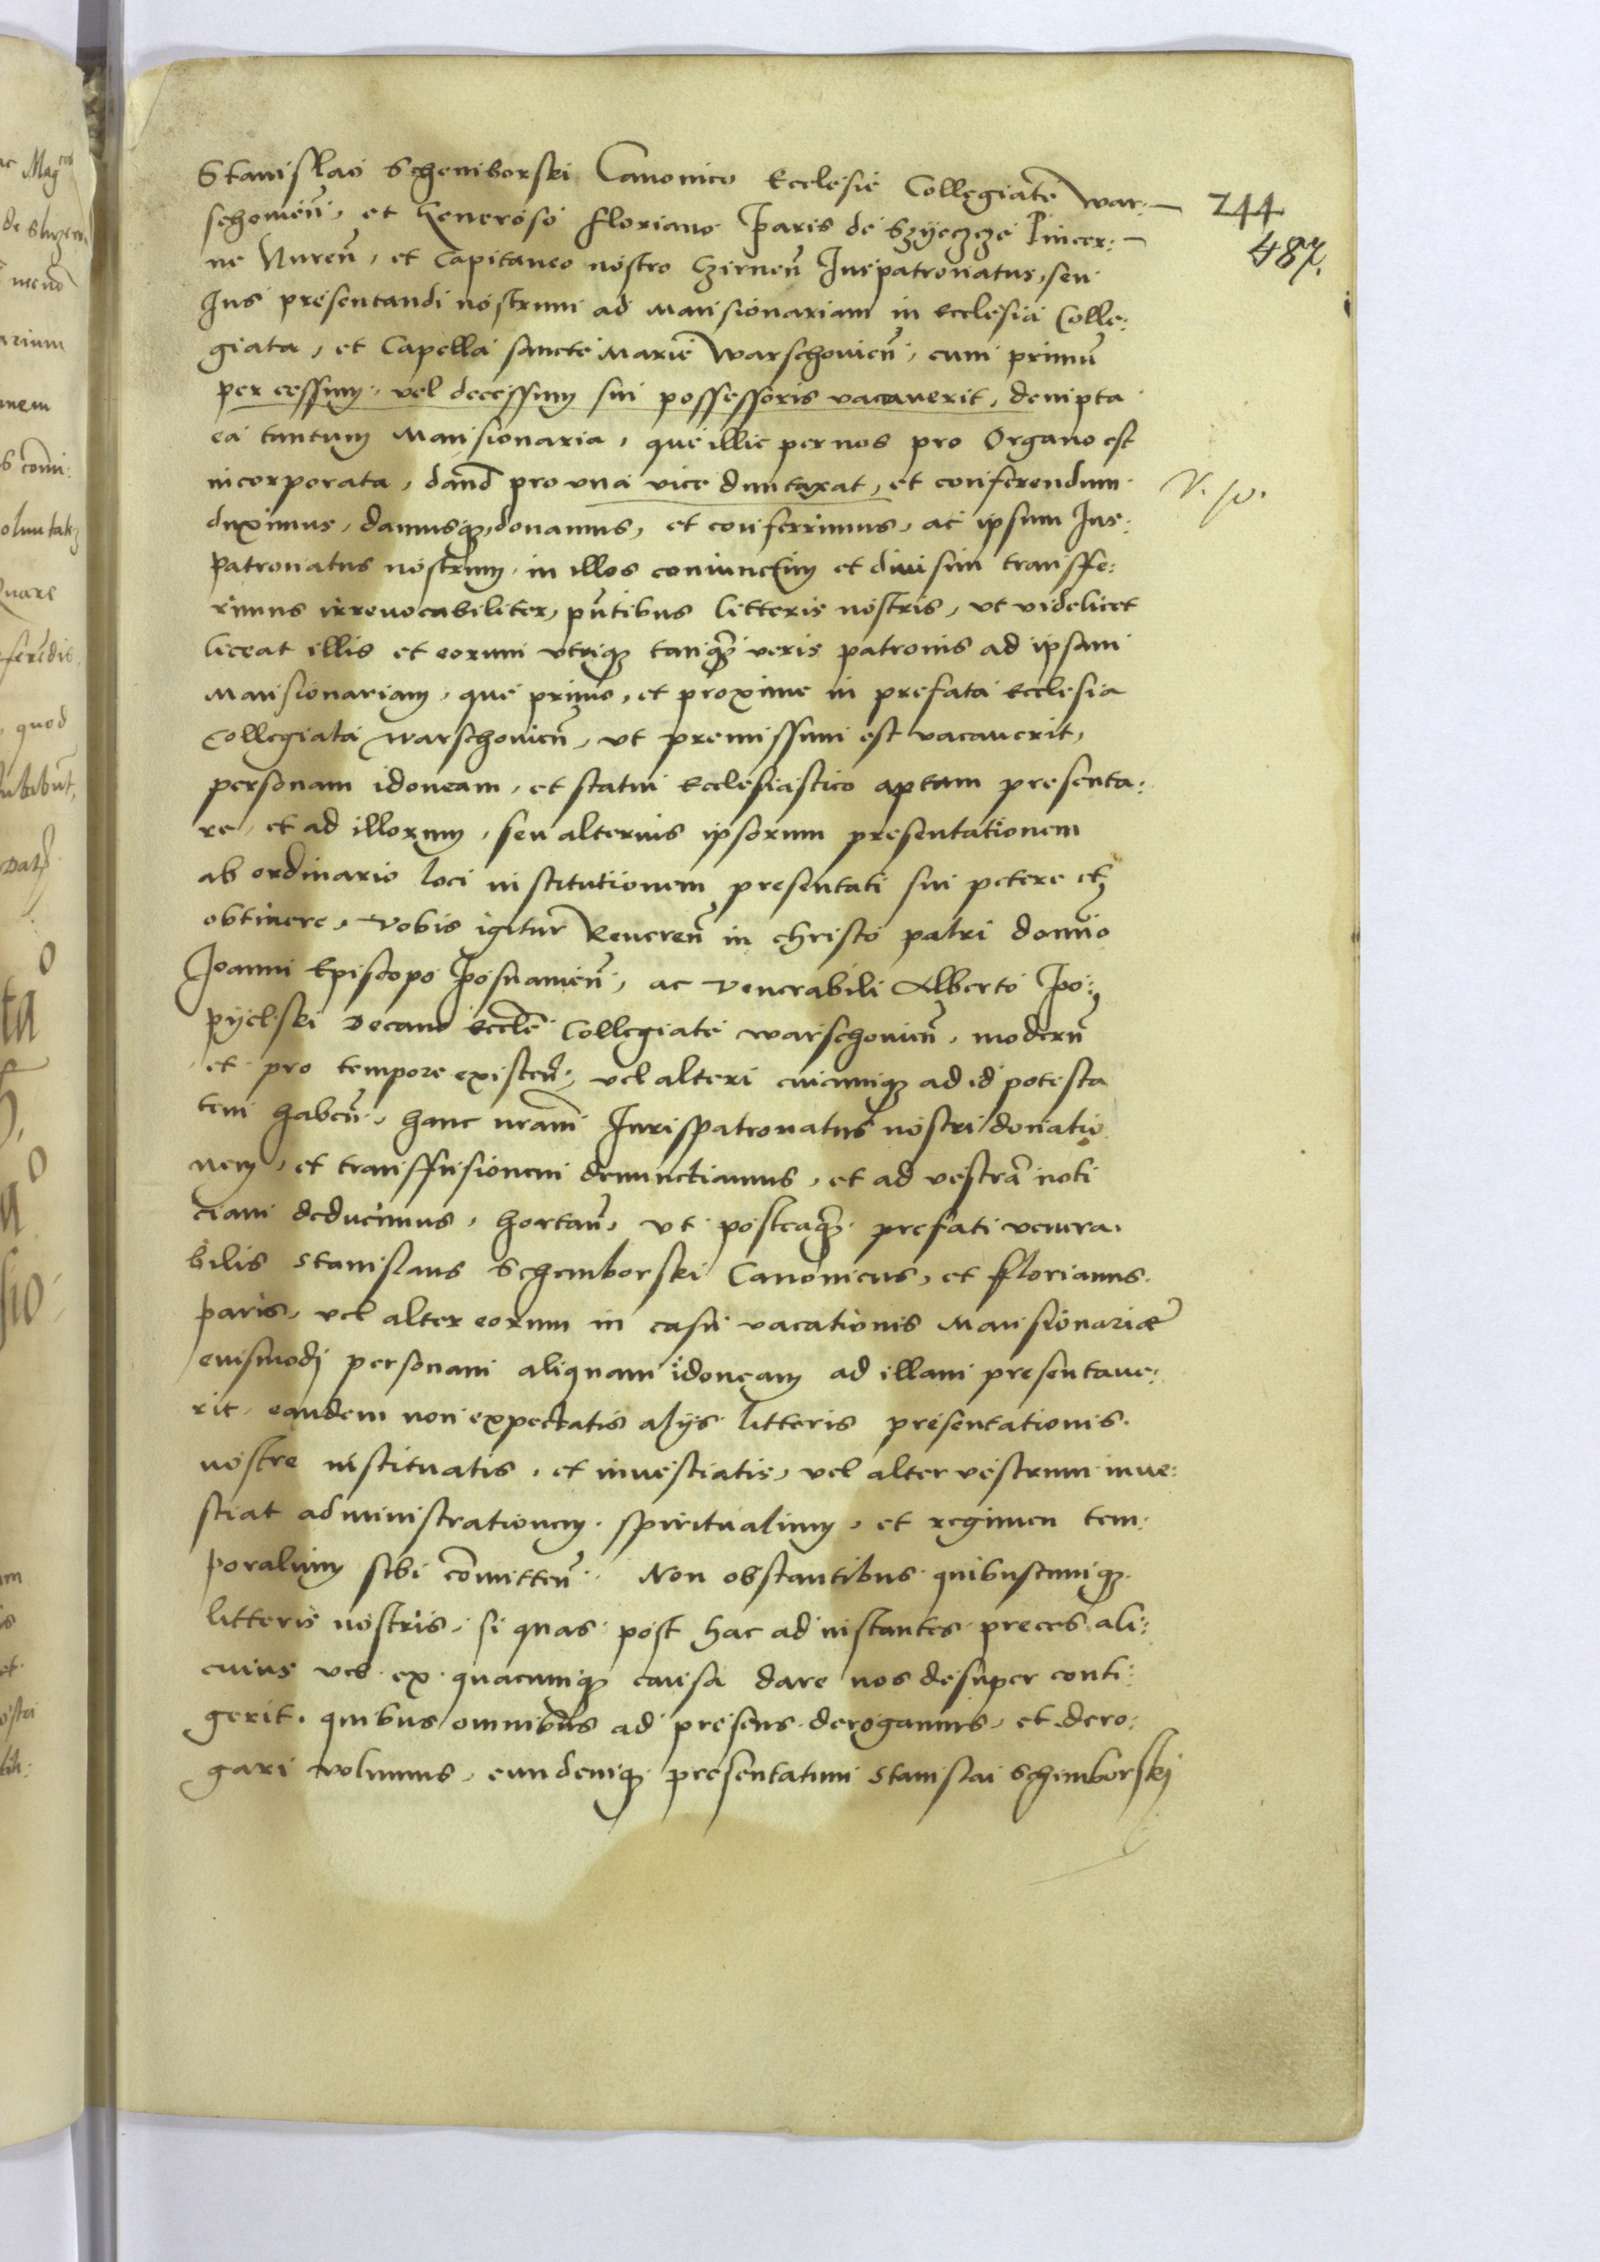 Stanislao Schemborski Canonico Ecclesie Collegiate War:
schouień, et Generoso Floriano Paris de Szyeczcze Pincer:
ne Nureń, et Capitaneo nostro Czirneń Iuspatronatus, seu
Ius presentandi nostrum ad Mansionariam in Ecclesia Colle:
giata, et Capella sancte Marie Warschouień, cum primū
per cessum vel decessum sui possessoris vacauerit, dempta
ea tantum Mansionaria, que illic per nos pro Organo est
incorporata, dand pro una vice duntaxat, et conferendum
duximus, damusq, donamus, et conferimus, ac ipsum Ius:
patronatus nostrum in illos coniunctim et diuisim transffe:
rimus irreuocabiliter, pntibus litteris nostris, ut videlicet
liceat illis et eorum utriq tanq̄ veris patronis ad ipsam
Mansionariam, que primo, et proxime in prefata Ecclesia
Collegiata Warschouień, ut premissum est vacauerit,
personam idoneam, et statui Ecclesiastico aptam presenta:
re, et ad illorum, seu alterius ipsorum presentationem
ab ordinario loci institutionem presentati sui petere et
obtinere, Vobis igitur Reuereń in Christo patri domio
Joanni Episcopo Posnanień, ac Venerabili Alberto Po:
pyelski Decano Eccleē Collegiate Warschouień, moderń
et pro tempore existeń, vel alteri cuicunq ad id potesta
tem habeń, hanc nram Iurispatronatus nostri donatio
nem, et transffusionem denunctiamus, et ad vestrā noti
ciam deducimus, hortań, ut posteaq̄ prefati venera:
bilis Stanislaus Schemborski Canonicus, et Florianus
Paris, vel alter eorum in casu vacationis Mansionariæ
eiusmodi personam aliquam idoneam ad illam presentaue:
rit, eandem non expectatis alijs litteris presentationis
nostre instituatis, et inuestiatis, vel alter vestrum inue:
stiat administrationem spiritualium, et regimen tem:
poralium sibi cōmitteń. Non obstantibus quibuscunq
litteris nostris, si quas post hac ad instantes preces ali:
cuius vel ex quacunq causa dare nos desuper conti:
gerit, quibus omnibus ad presens derogamus, et dero:
gari volumus, eundemq presentatum Stanislai Schemborski
244
487.